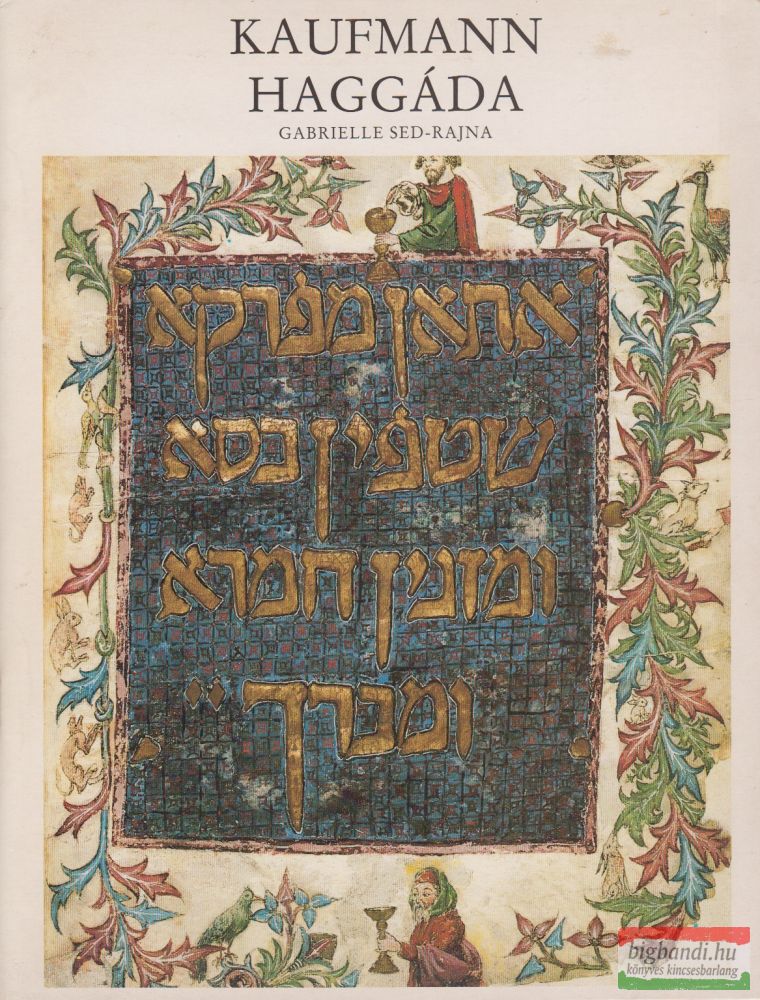 KAUFMANN
HAGGÁDA
GABRIELLE SED-RAJNA
אתאן מפרקא
שטפין כסא
ומזגין חמרא
ומברך
bigbandi.hu
könyves kincsesbarlang